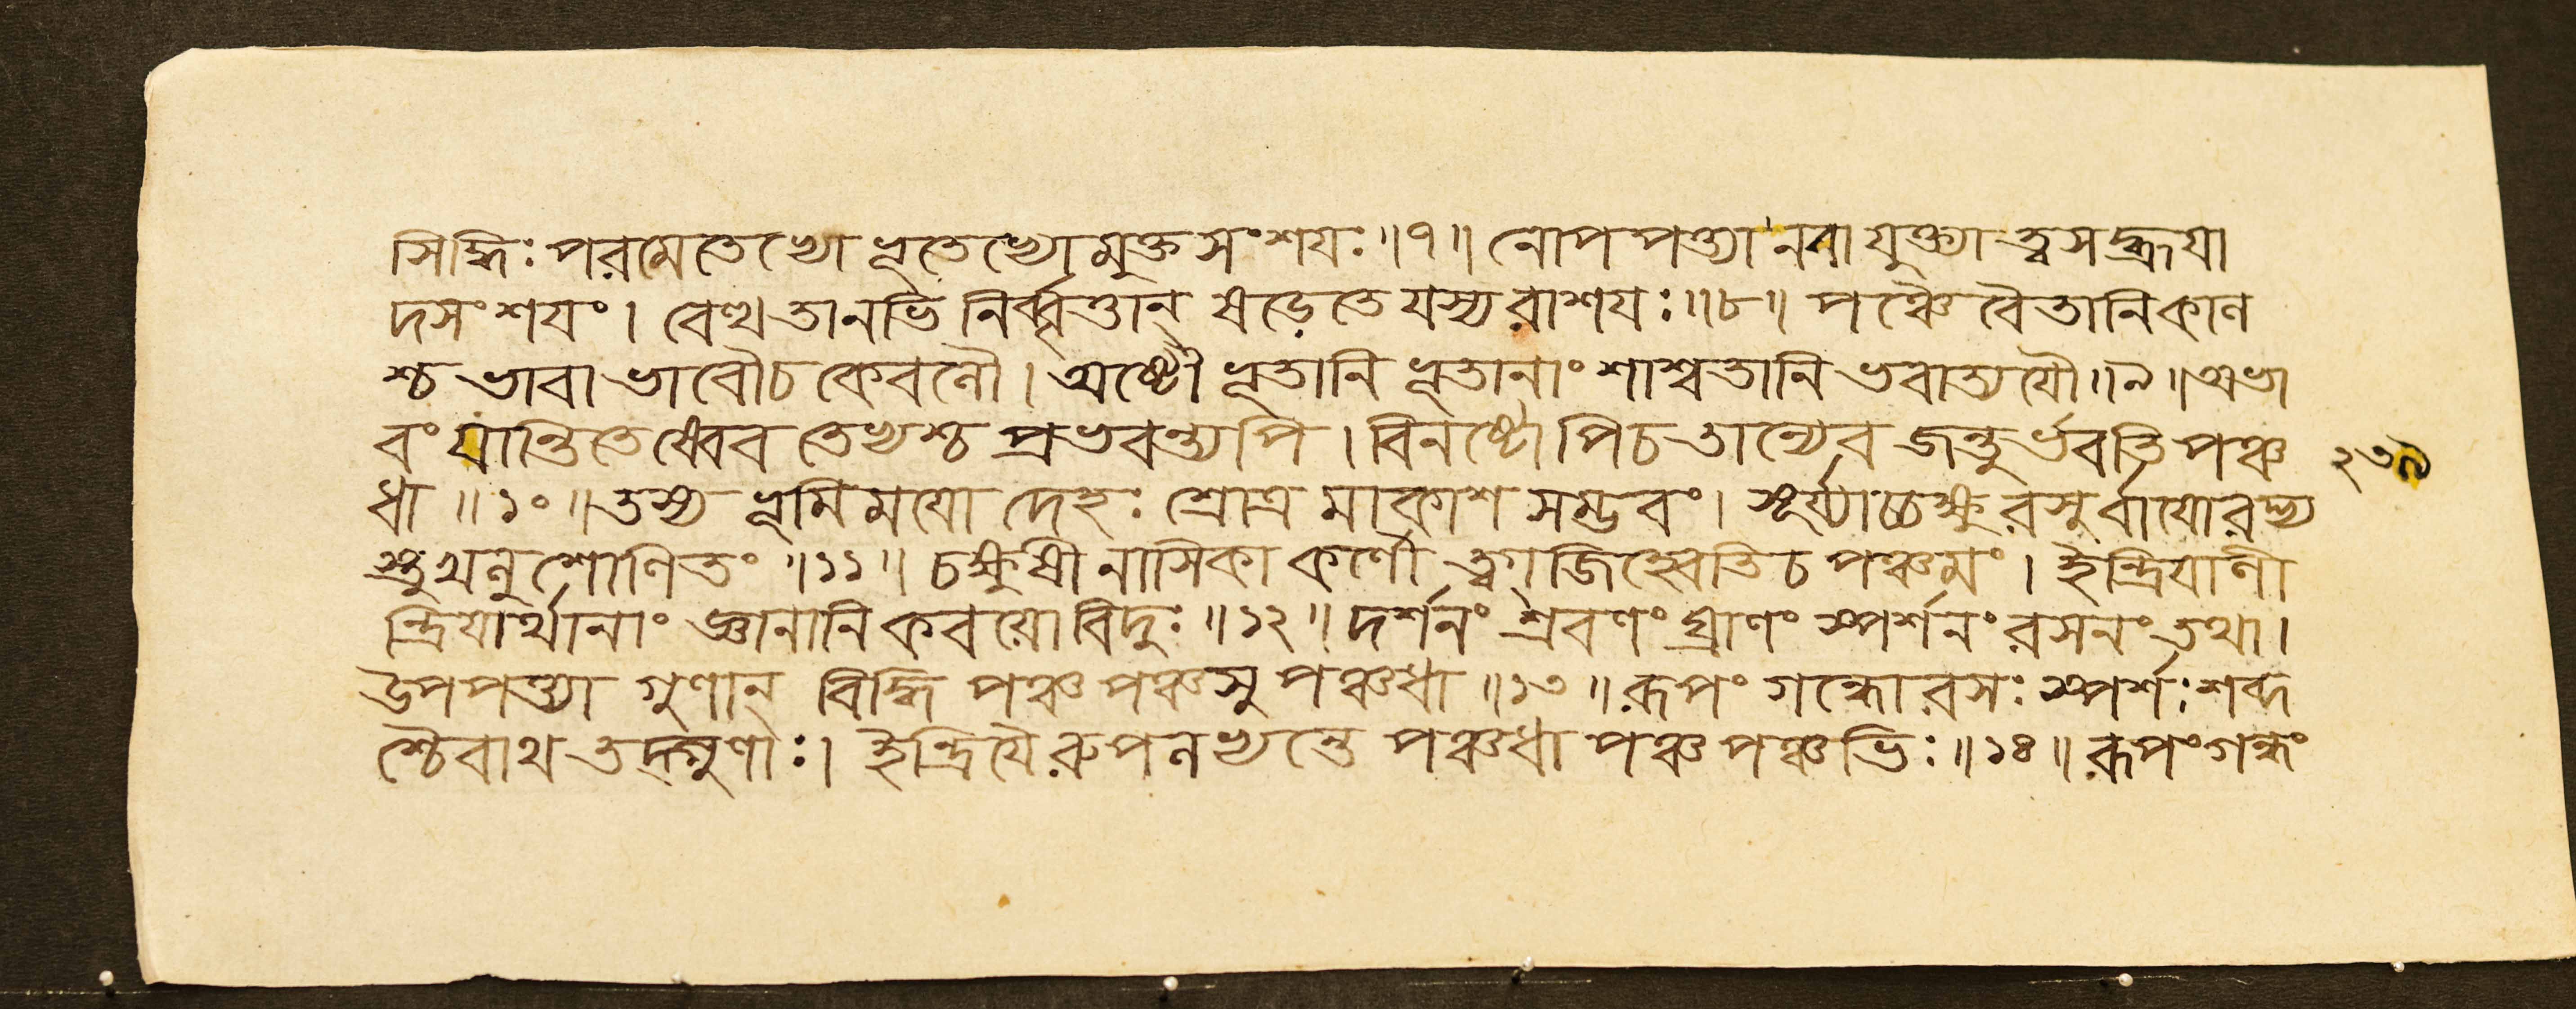 সিদ্ধিঃ পরমেতেভ্যো ভূতেভ্যো মুক্ত সংশয়ঃ ॥৭॥ নোপপত্ত্যা নবা যুক্ত্যা ত্বসদ্ব্রূয়া
দসংশয়ং । বেত্থ তানভি নির্ব্বৃত্তান্ ষড়েতে যস্য রাশয়ঃ ॥৮॥ পঞ্চৈ বৈতানি কাল
শ্চ ভাবা ভাবৌ চ কেবলৌ । অষ্টৌ ভূতানি ভূতানাং শাশ্বতানি ভবাত্যযৌ ॥৯॥ অভা
বং যান্তি তেষ্বেব তেভ্যশ্চ প্রভবন্ত্যপি । বিনষ্টোপি চ তান্যেব জন্তুর্ভবতি পঞ্চ
২৩৯
ধা ॥১০॥ তস্য ভূমিময়ো দেহঃ শ্রোত্র মাকাশ সম্ভবং । সূর্য্যাচ্চক্ষু রসুর্বায়োরদ্ভ্য
স্তু খলু শোণিতং ॥১১॥ চক্ষুষী নাসিকা কর্ণৌ ত্বগ্ জিহ্বেতি চ পঞ্চমং । ইন্দ্রিয়াণী
ন্দ্রিয়ার্থানাং জ্ঞানানি কবয়ো বিদুঃ ॥১২॥ দর্শনং শ্রবণং ঘ্রাণং স্পর্শনং রসনং তথা ।
উপপত্ত্যা গুণান্ বিদ্ধি পঞ্চ পঞ্চসু পঞ্চধা ॥১৩॥ রূপং গন্ধো রসঃ স্পর্শঃ শব্দ
শ্চৈবাথ তদ্গুণাঃ । ইন্দ্রিয়ৈ রুপলভ্যন্তে পঞ্চধা পঞ্চ পঞ্চভিঃ ॥১৪॥ রূপং গন্ধং